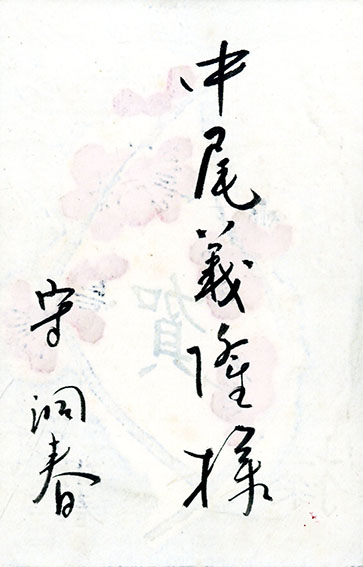 中尾義隆様
守洞春
賀